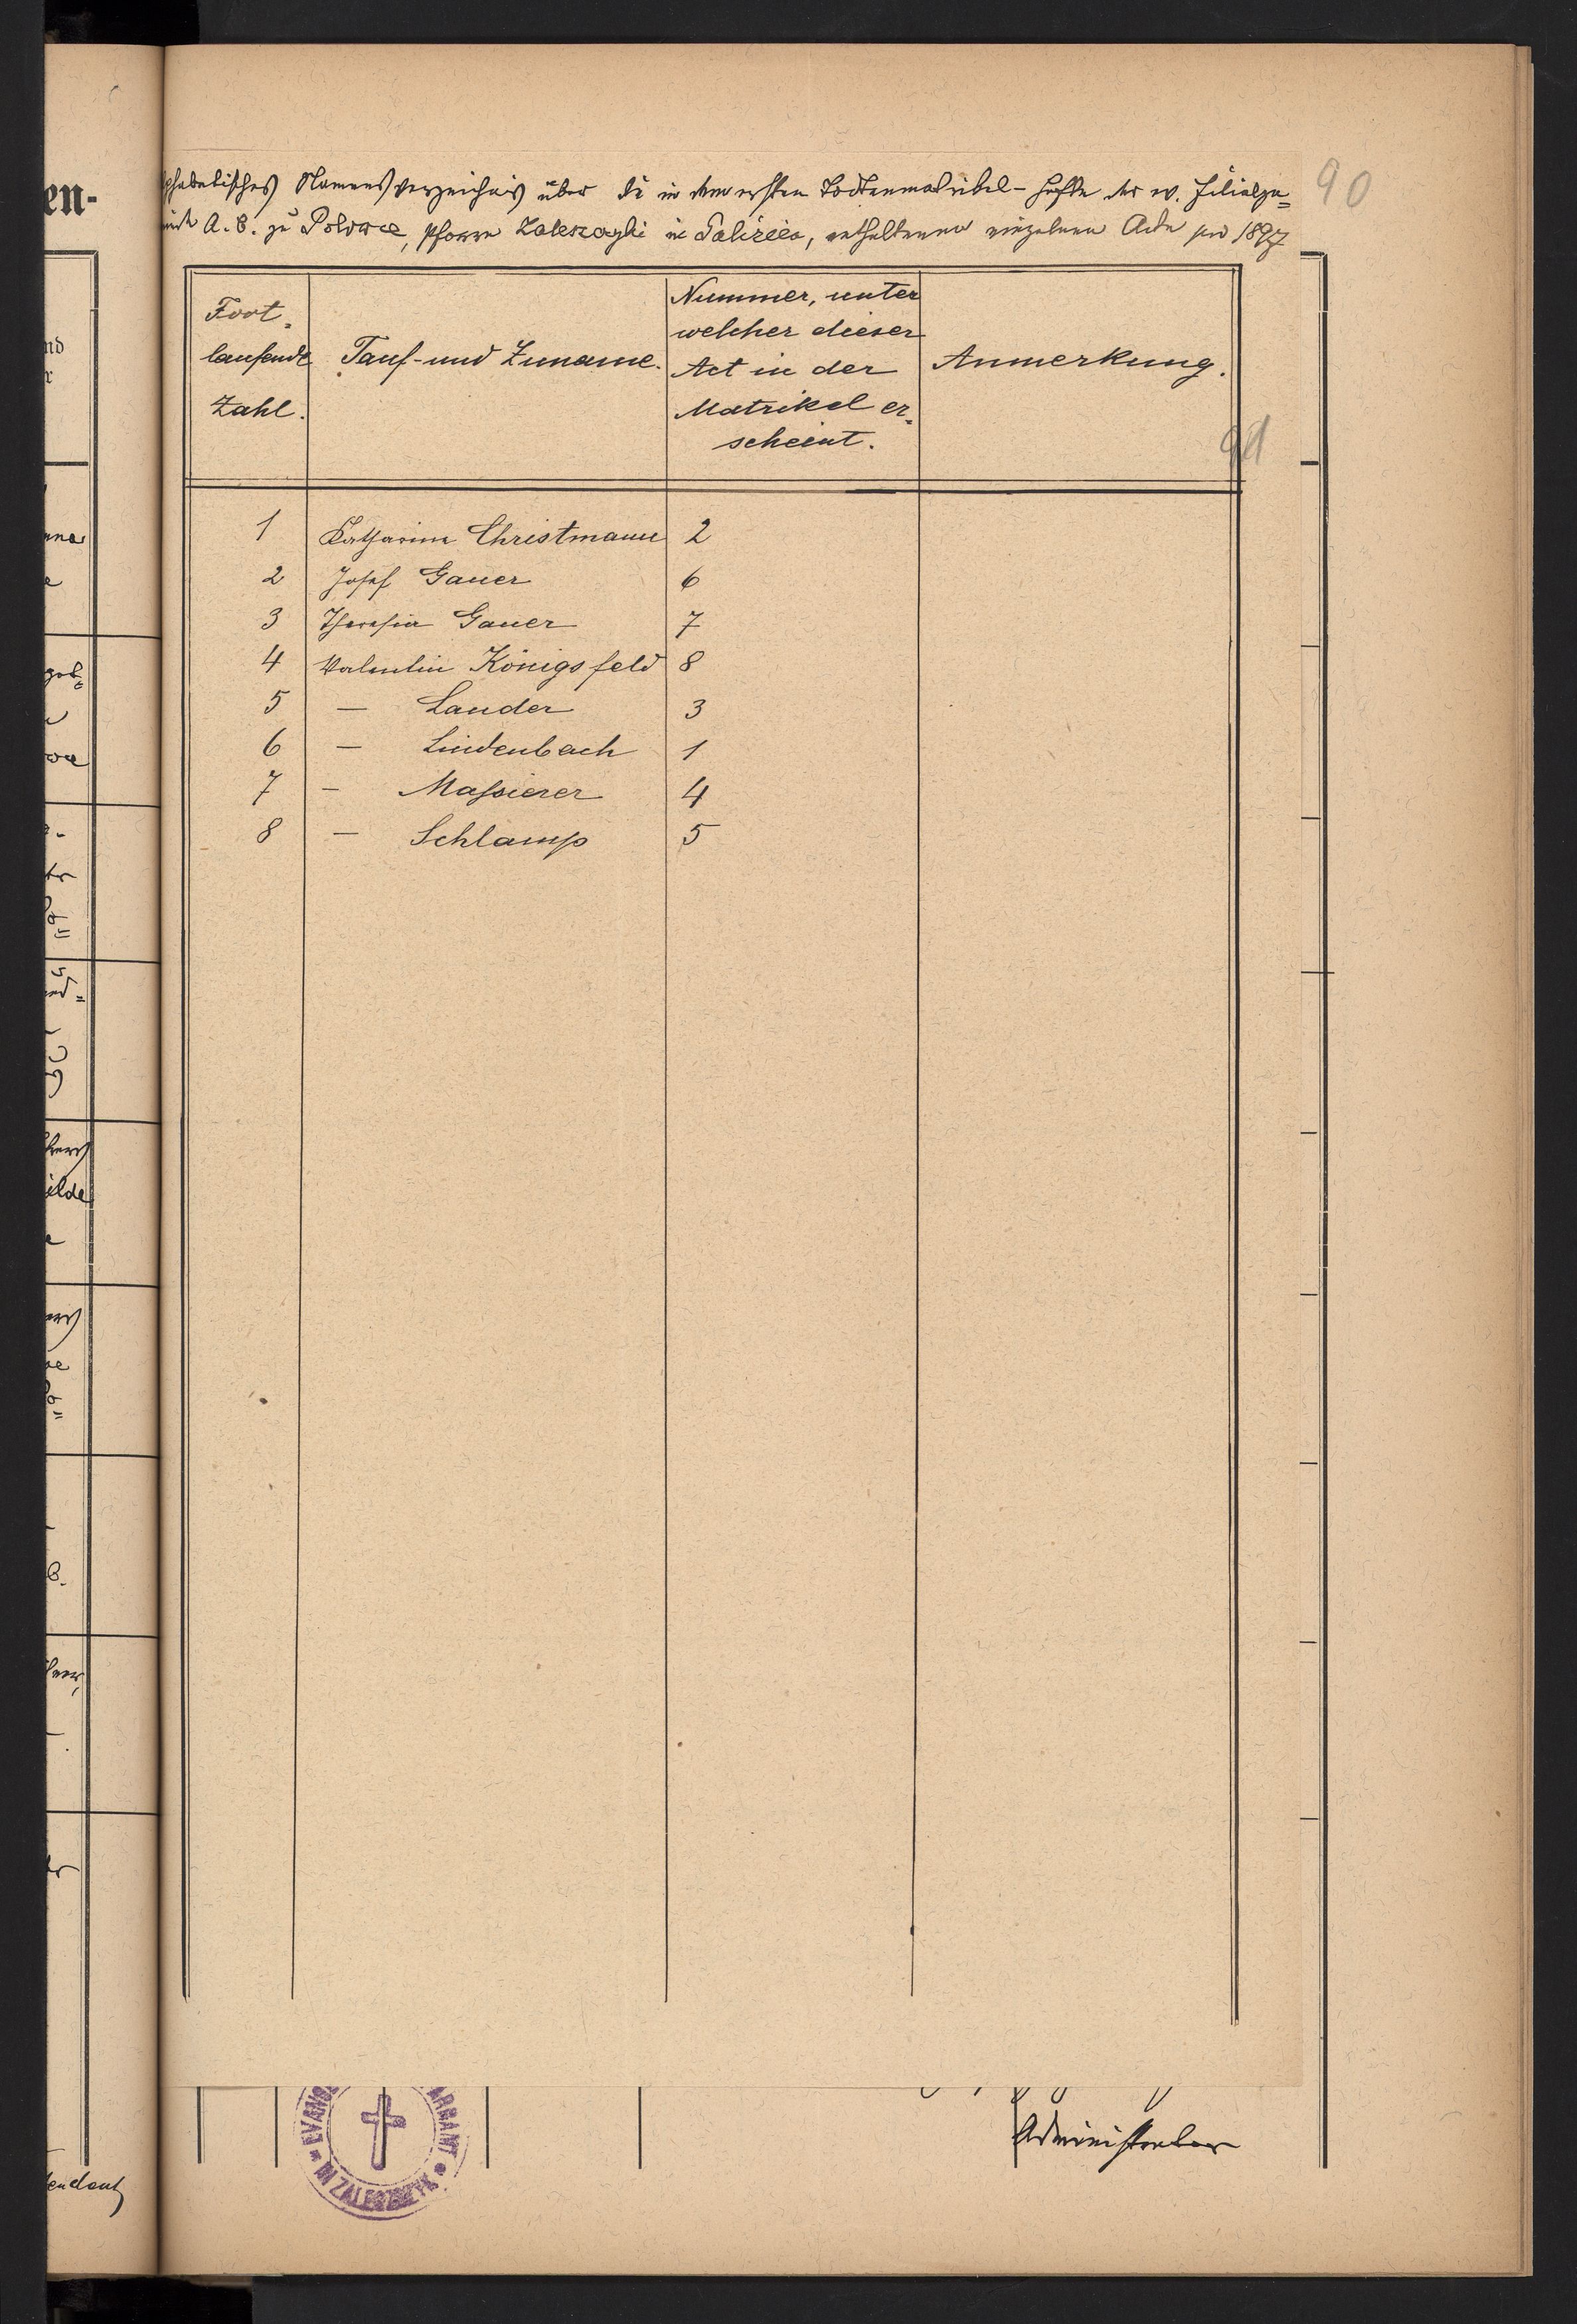 phabetisches Namensverzeichnis über die in dem ersten Todtenmatrikel-Hefte der ev. Filialge=
meinde A. B. zu Polowce, Pfarre Zaleszczyki in Galizien, enthaltenen einzelnen Acte pro 1897
90
Fort=
laufende
Zahl.
Tauf- und Zuname.
Nummer, unter
welcher dieser
Act in der
Matrikel er=
scheint.
Anmerkung.
91
1 Katharina Christmann 2
2 Josef Gauer 6
3 Theresia Gauer 7
4 Valentin Königsfeld 8
5 — Lander 3
6 — Lindenbach 1
7 — Massierer 4
8 — Schlamp 5
Administrator
IN ZALESZCZYK
en-
nd
r
ilde